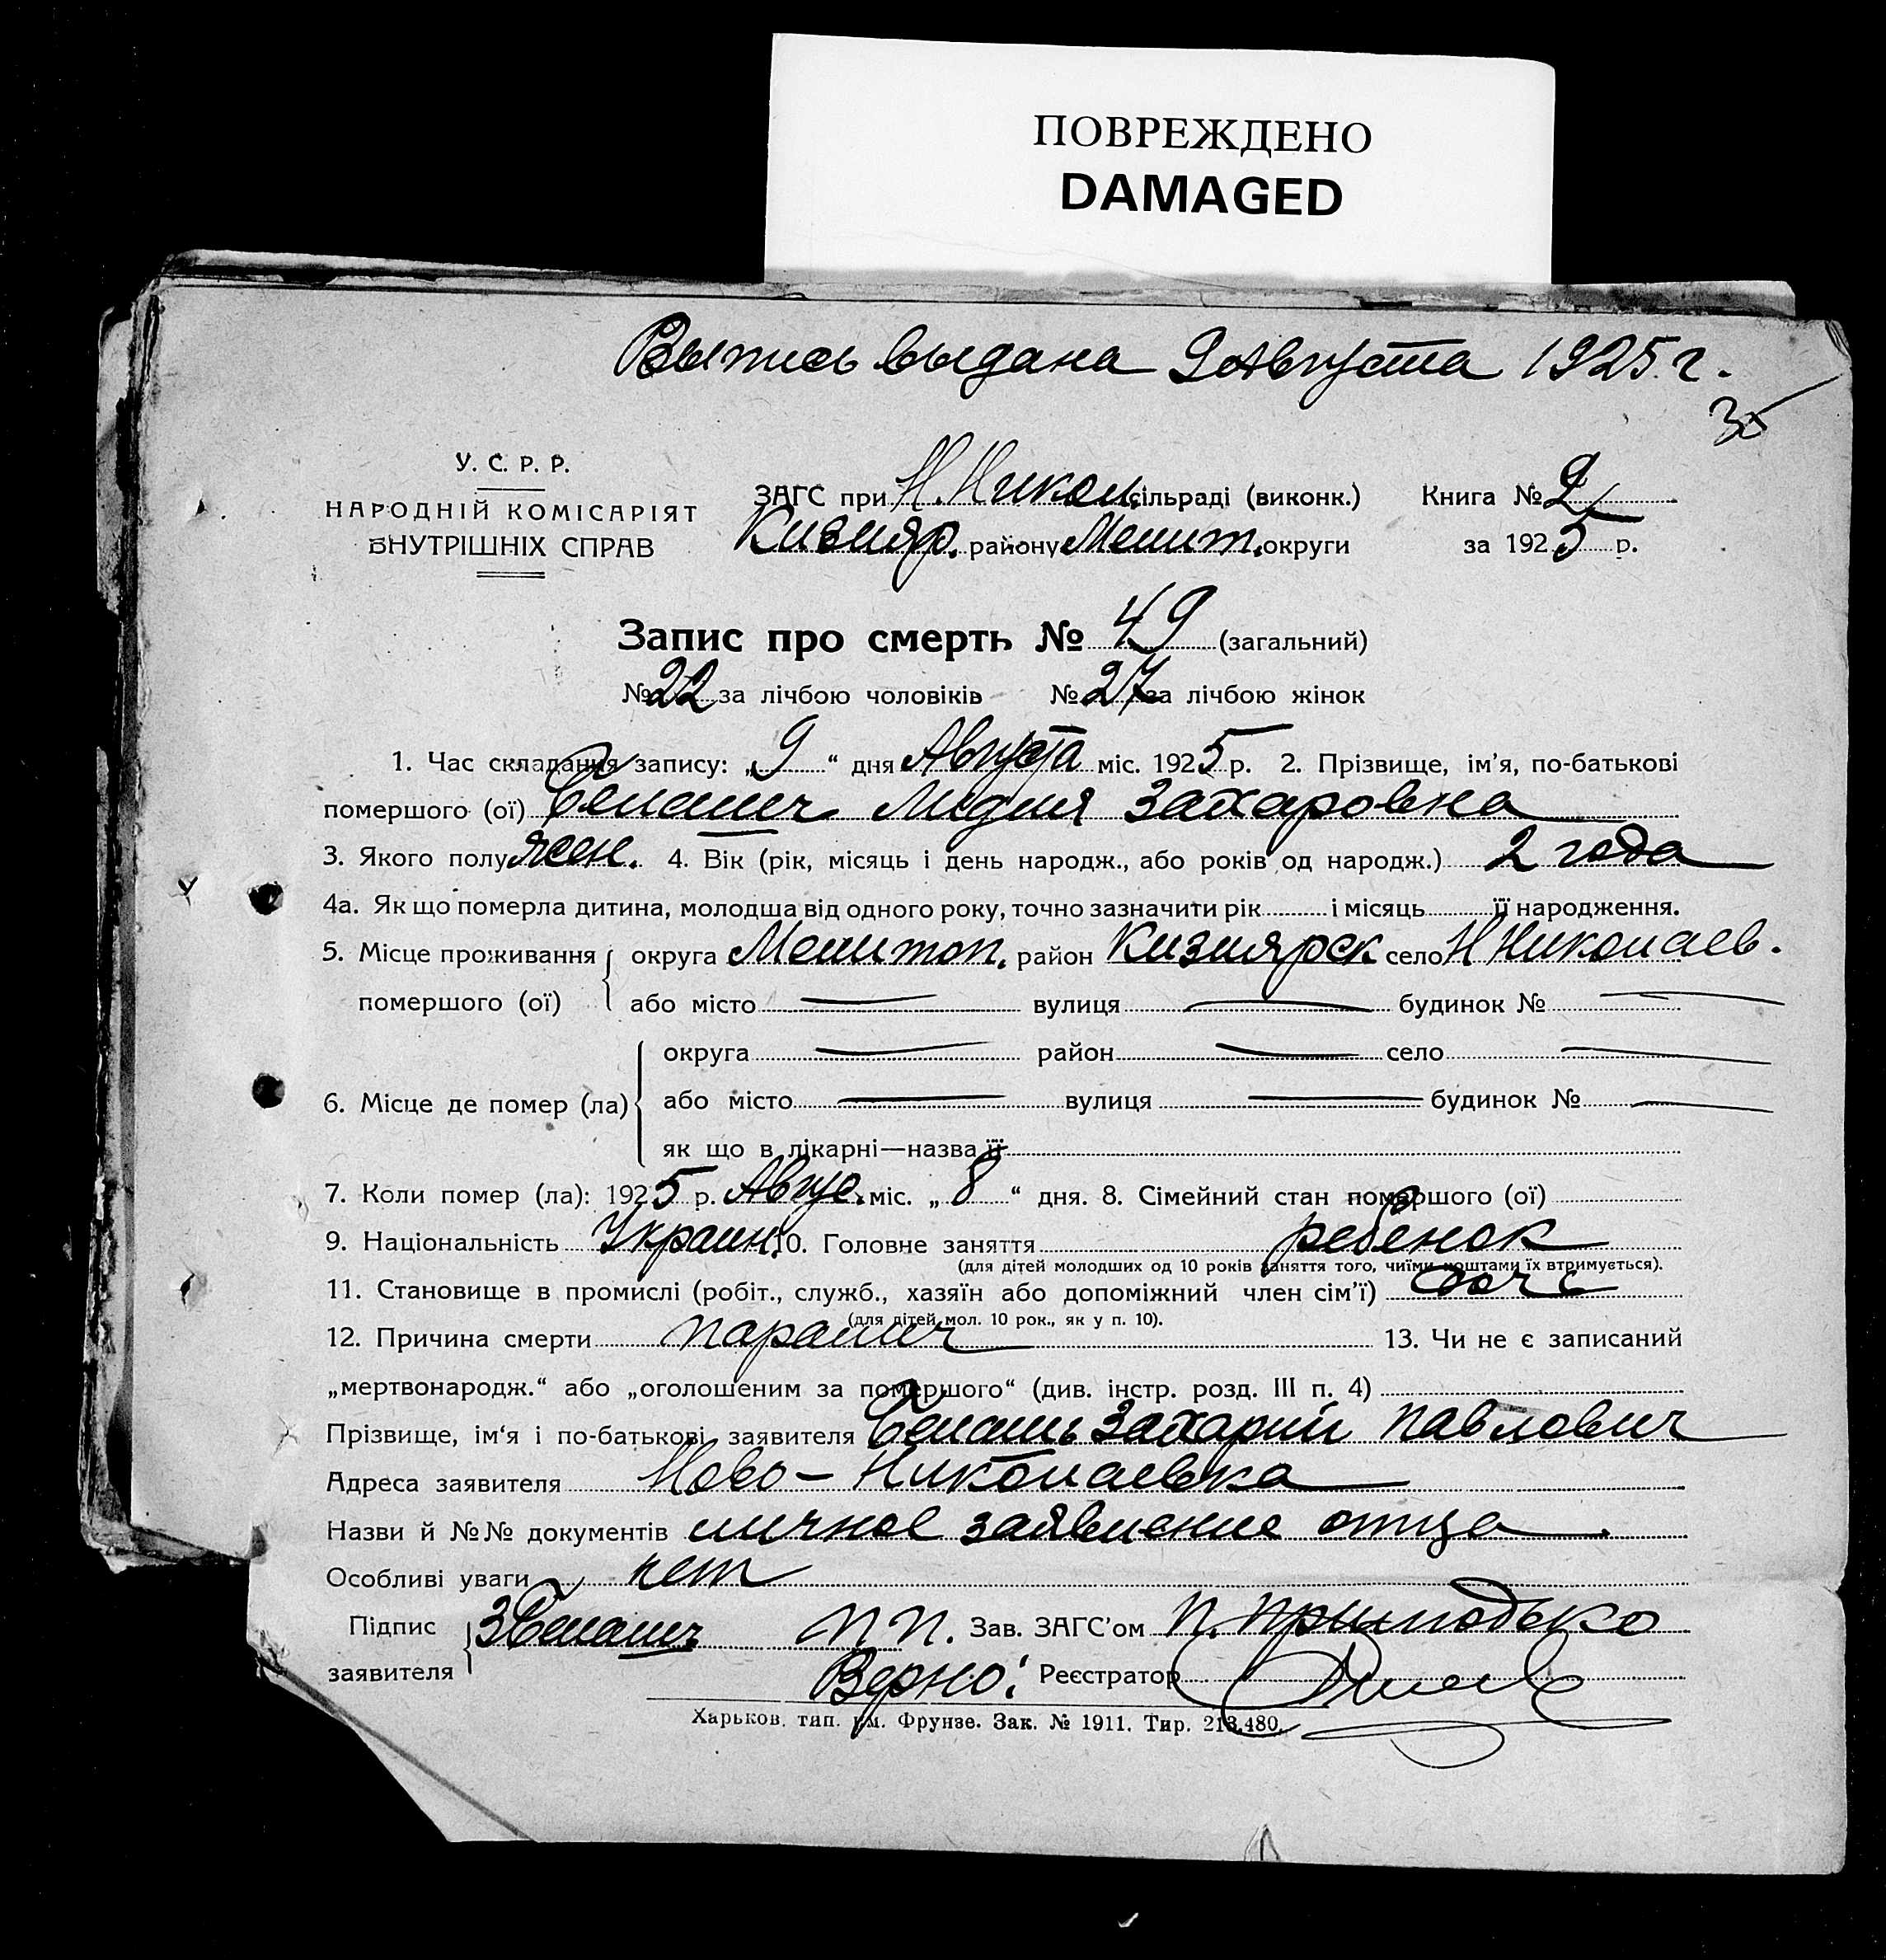 ПОВРЕЖДЕНО
DAMAGED
Выпись выдана 9 Августа 1925 г.
35
У. С. Р. Р.
НАРОДНІЙ КОМІСАРІЯТ
ВНУТРІШНІХ СПРАВ
ЗАГС при Н. Никол. сільраді (виконк.) Книга № 2
Кизияр. району Мелит. округи за 1925 р.
Запис про смерть № 49 (загальний)
№ 22 за лічбою чоловіків № 27 за лічбою жінок
1. Час складання запису: „ 9 “ дня Августа міс. 1925 р. 2. Прізвище, ім’я, по-батькові
помершого (ої) Лидия Захаровна
3. Якого полу жен. 4. Вік (рік, місяць і день народж., або років од народж.) 2 года
4а. Як що померла дитина, молодша від одного року, точно зазначити рік і місяць її народження.
5. Місце проживання помершого (ої) округа Мелитоп. район Кизиярск село Н Николаев.
або місто — вулиця — будинок № —
6. Місце де помер (ла) округа — район — село —
або місто — вулиця — будинок № —
як що в лікарні—назва її
7. Коли помер (ла): 1925 р. Авгус. міс. „ 8 “ дня. 8. Сімейний стан помершого (ої)
9. Національність Украин. 10. Головне заняття ребенок
(для дітей молодших од 10 років заняття того, чиїми коштами їх втримується).
11. Становище в промислі (робіт., служб., хазяїн або допоміжний член сім’ї) дочь
(для дітей мол. 10 рок., як у п. 10).
12. Причина смерти паралич 13. Чи не є записаний
„мертвонародж.“ або „оголошеним за помершого“ (див. інстр. розд. III п. 4)
Прізвище, ім‘я і по-батькові заявителя Захарий Павлович
Адреса заявителя Ново-Николаевка
Назви й №№ документів личное заявление отца
Особливі уваги нет
Підпис заявителя п п. Зав. ЗАГС’ом П. Прилюдько
Верно: Реєстратор
Харьков, тип. им. Фрунзе. Зак. № 1911. Тир. 213.480.